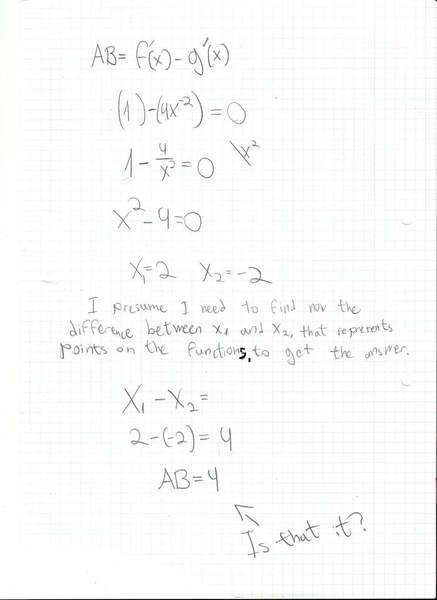 AB= f'(x) - g'(x)
(1)-(4x⁻²) = 0
1 - 4/x² = 0 \x²
x² - 4 = 0
x₁=2 x₂=-2
I presume I need to find nov the
difference between x₁ and x₂, that reprerents
points on the functions, to get the answer.
X₁ - X₂ =
2-(-2) = 4
AB=4
Is that it?